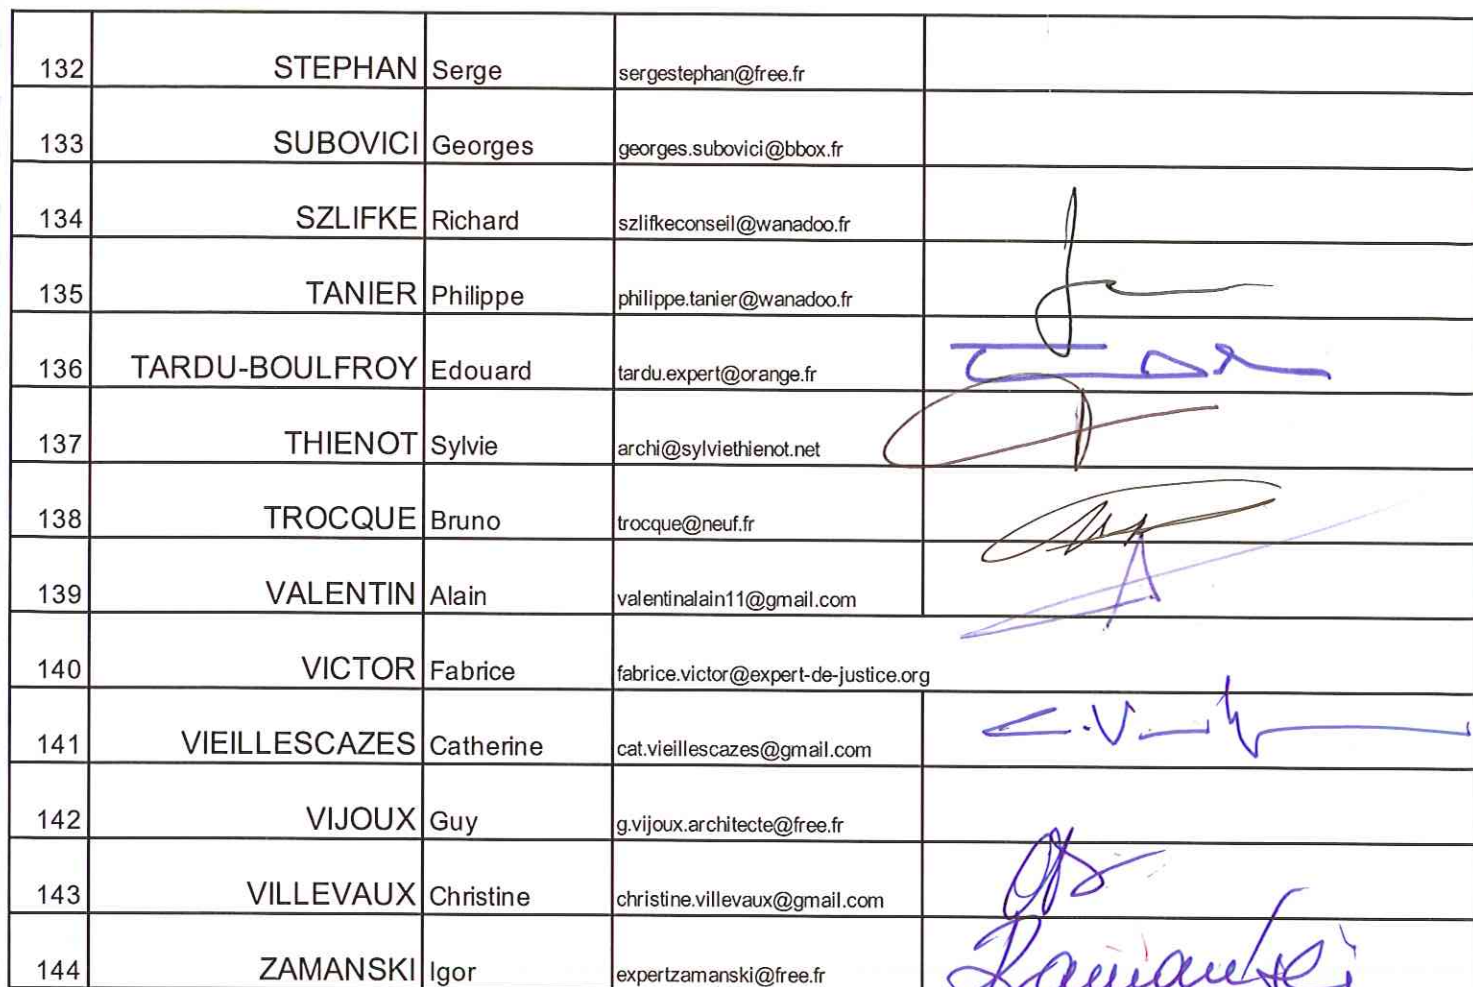 132 STEPHAN Serge sergestephan@free.fr
133 SUBOVICI Georges georges.subovici@bbox.fr
134 SZLIFKE Richard szlifkeconseil@wanadoo.fr
135 TANIER Philippe philippe.tanier@wanadoo.fr
136 TARDU-BOULFROY Edouard tardu.expert@orange.fr
137 THIENOT Sylvie archi@sylviethienot.net
138 TROCQUE Bruno trocque@neuf.fr
139 VALENTIN Alain valentinalain11@gmail.com
140 VICTOR Fabrice fabrice.victor@expert-de-justice.org
141 VIEILLESCAZES Catherine cat.vieillescazes@gmail.com
142 VIJOUX Guy g.vijoux.architecte@free.fr
143 VILLEVAUX Christine christine.villevaux@gmail.com
144 ZAMANSKI Igor expertzamanski@free.fr Zamanski